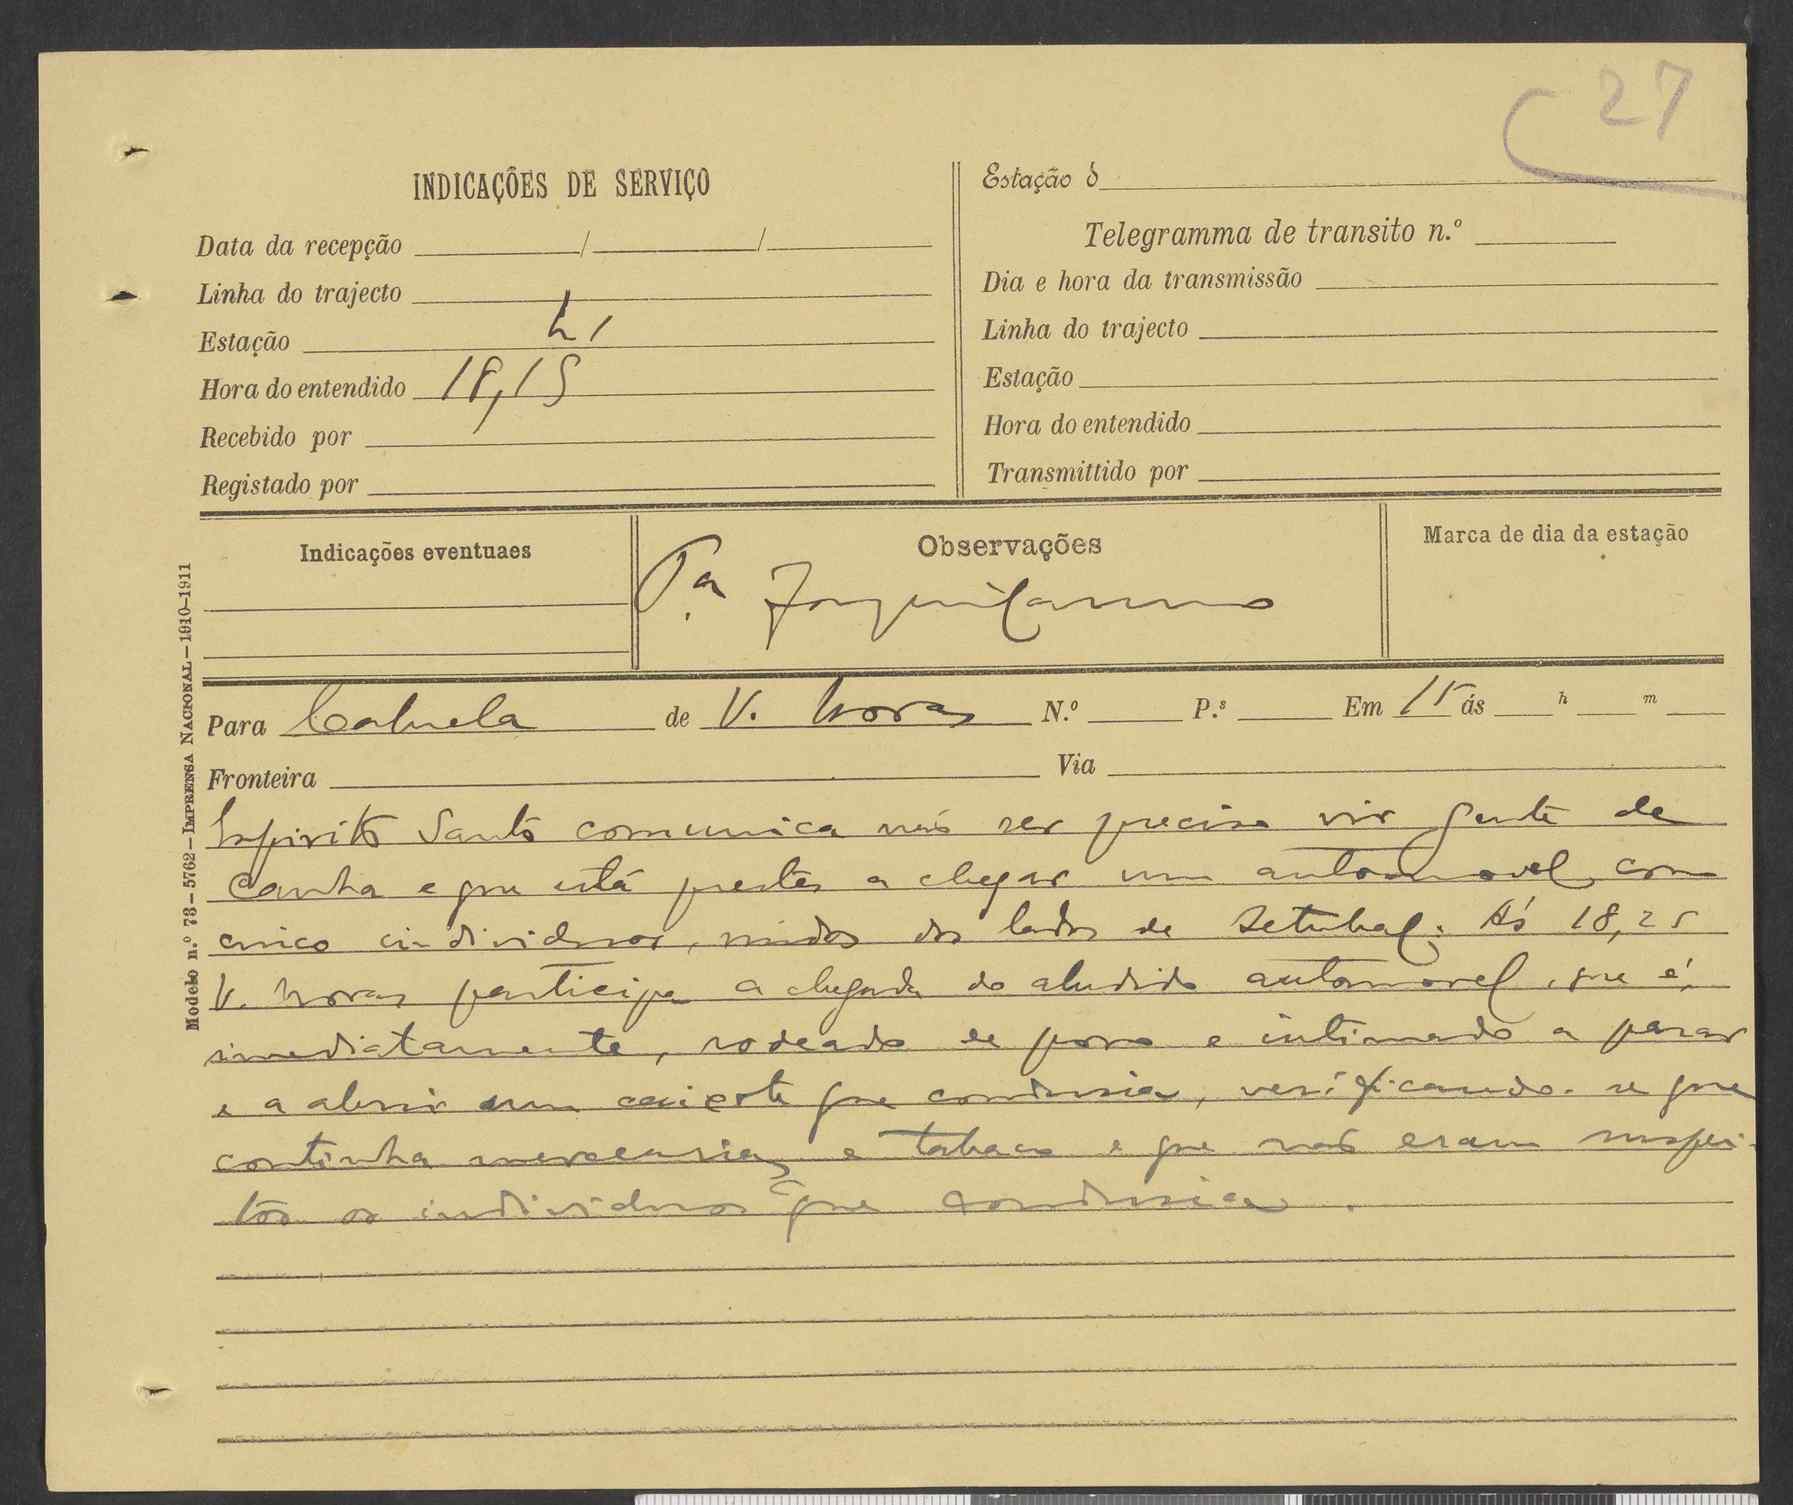 27
INDICAÇÕES DE SERVIÇO
Data da recepção / /
Linha do trajecto
Estação
Hora do entendido 18,15
Recebido por
Registado por
Estação d
Telegramma de transito n.º
Dia e hora da transmissão
Linha do trajecto
Estação
Hora do entendido
Transmittido por
Indicações eventuaes
Observações
Pª
Marca de dia da estação
Para Cabrela de V. Novas N.º P.s Em 15 ás h m
Fronteira Via
Espirito Santo comunica não ser preciso vir gente de
Canha e que está prestes a chegar um automovel com
cinco individuos, vindos dos lados de Setubal. Ás 18,25
V. Novas participa a chegada do aludido automovel, que é,
imediatamente, rodeado de povo e intimado a parar
e a abrir um caixote que condusia, verificando-se que
continha mercearias e tabaco e que não eram suspei-
tos os individuos que condusia.
Modelo n.º 73–5762–IMPRENSA NACIONAL–1910–1911